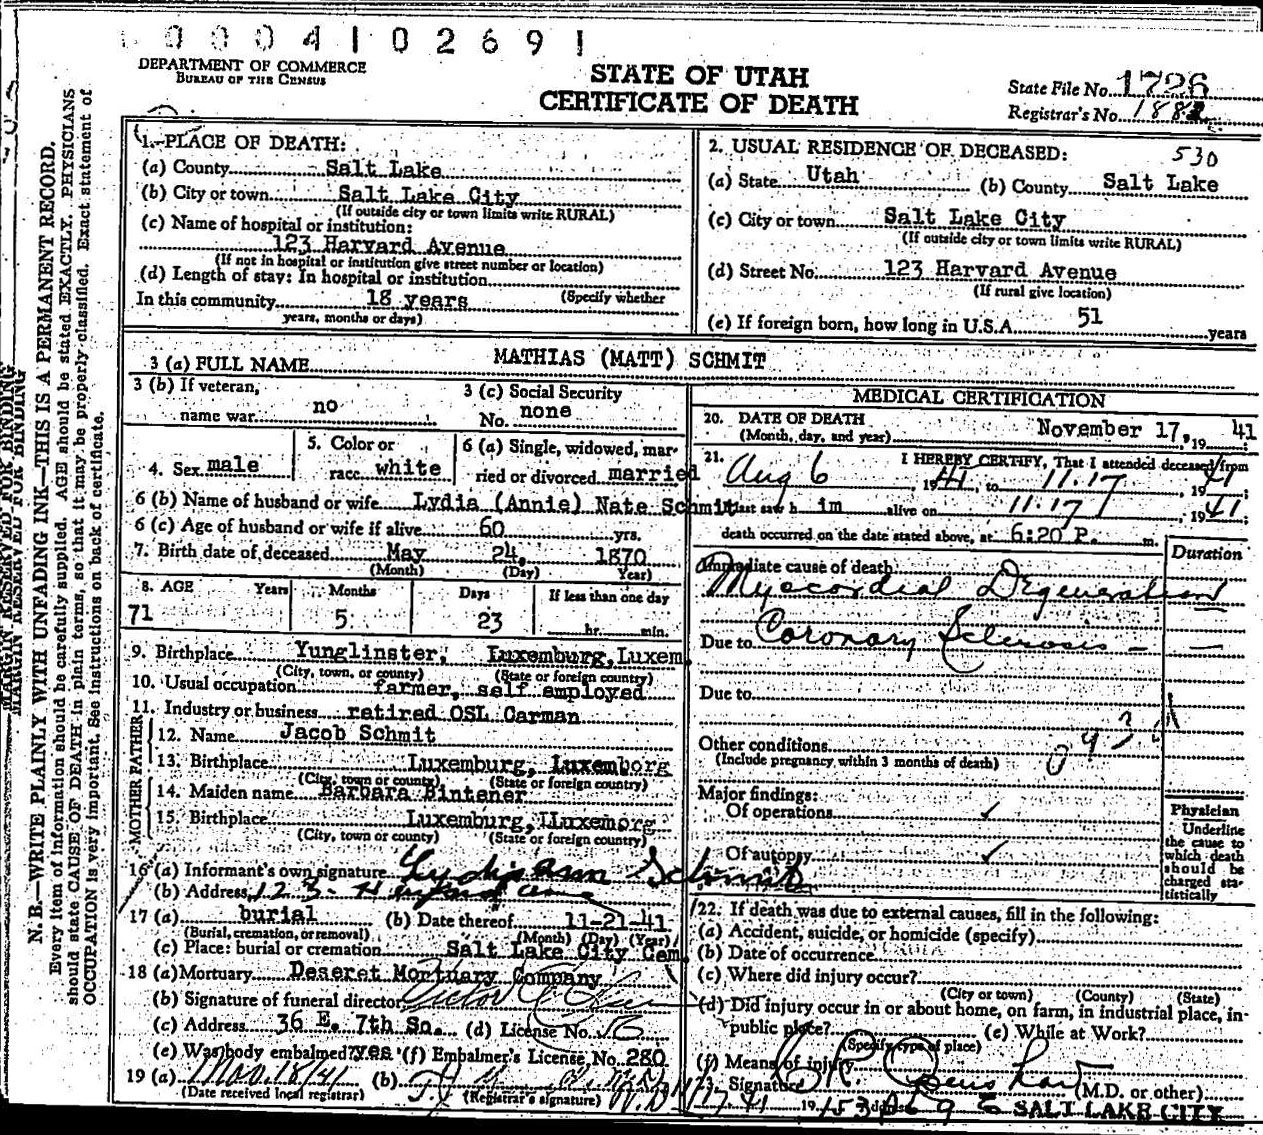 0 0 0 4 1 0 2 6 9 1
DEPARTMENT OF COMMERCE
BUREAU OF THE CENSUS
STATE OF UTAH
CERTIFICATE OF DEATH
State File No. 1726
Registrar's No. 1882
MARGIN RESERVED FOR BINDING
N. B.—WRITE PLAINLY WITH UNFADING INK—THIS IS A PERMANENT RECORD.
Every item of information should be carefully supplied. AGE should be stated EXACTLY. PHYSICIANS
should state CAUSE OF DEATH in plain terms, so that it may be properly classified. Exact statement of
OCCUPATION is very important. See instructions on back of certificate.
1. PLACE OF DEATH:
(a) County Salt Lake
(b) City or town Salt Lake City
(If outside city or town limits write RURAL)
(c) Name of hospital or institution:
123 Harvard Avenue
(If not in hospital or institution give street number or location)
(d) Length of stay: In hospital or institution
In this community 18 years (Specify whether
years, months or days)
2. USUAL RESIDENCE OF DECEASED: 530
(a) State Utah (b) County Salt Lake
(c) City or town Salt Lake City
(If outside city or town limits write RURAL)
(d) Street No. 123 Harvard Avenue
(If rural give location)
(e) If foreign born, how long in U.S.A. 51 years
3 (a) FULL NAME MATHIAS (MATT) SCHMIT
3 (b) If veteran,
name war no
3 (c) Social Security
No. none
4. Sex male
5. Color or
race white
6 (a) Single, widowed, mar-
ried or divorced married
6 (b) Name of husband or wife Lydia (Annie) Nate Schmit
6 (c) Age of husband or wife if alive 60 yrs.
7. Birth date of deceased May 24, 1870
(Month) (Day) Year)
8. AGE Years Months Days If less than one day
71 5 23 hr. min.
9. Birthplace Yunglinster, Luxemburg, Luxem.
(City, town, or county) (State or foreign country)
10. Usual occupation farmer, self employed
11. Industry or business retired OSL Carman
FATHER
12. Name Jacob Schmit
13. Birthplace Luxemburg, Luxemborg
(City, town or county) (State or foreign country)
MOTHER
14. Maiden name Barbara Bintener
15. Birthplace Luxemburg, LLuxemorg
(City, town or county) (State or foreign country)
16 (a) Informant's own signature Lydia Ann Schmit
(b) Address 123 - Harvard ave
17 (a) burial (b) Date thereof 11-21-41
(Burial, cremation, or removal) (Month) (Day) (Year)
(c) Place: burial or cremation Salt Lake City Cem.
18 (a) Mortuary Deseret Mortuary Company
(b) Signature of funeral director
(c) Address 36 E. 7th So. (d) License No. 16
(e) Was body embalmed? yes (f) Embalmer's License, No. 280
19 (a) Nov 18/41 (b)
(Date received local registrar) (Registrar's signature)
MEDICAL CERTIFICATION
20. DATE OF DEATH
(Month, day, and year) November 17, 19 41
21. I HEREBY CERTIFY, That I attended deceased from
Aug 6, 1941, to 11.17, 1941;
I last saw h im alive on 11.17, 1941;
death occurred on the date stated above, at 6:20 P. m.
Duration
Immediate cause of death
Myocordial Degeneration
Due to Coronary Sclerosis
Due to
Other conditions
(Include pregnancy within 3 months of death)
Major findings:
Of operations ✓
Of autopsy ✓
Physician
Underline
the cause to
which death
should be
charged sta-
tistically
22. If death was due to external causes, fill in the following:
(a) Accident, suicide, or homicide (specify)
(b) Date of occurrence
(c) Where did injury occur?
(City or town) (County) (State)
(d) Did injury occur in or about home, on farm, in industrial place, in-
public place? (e) While at Work?
(Specify type of place)
(f) Means of injury
23. Signature (M.D. or other)
SALT LAKE CITY